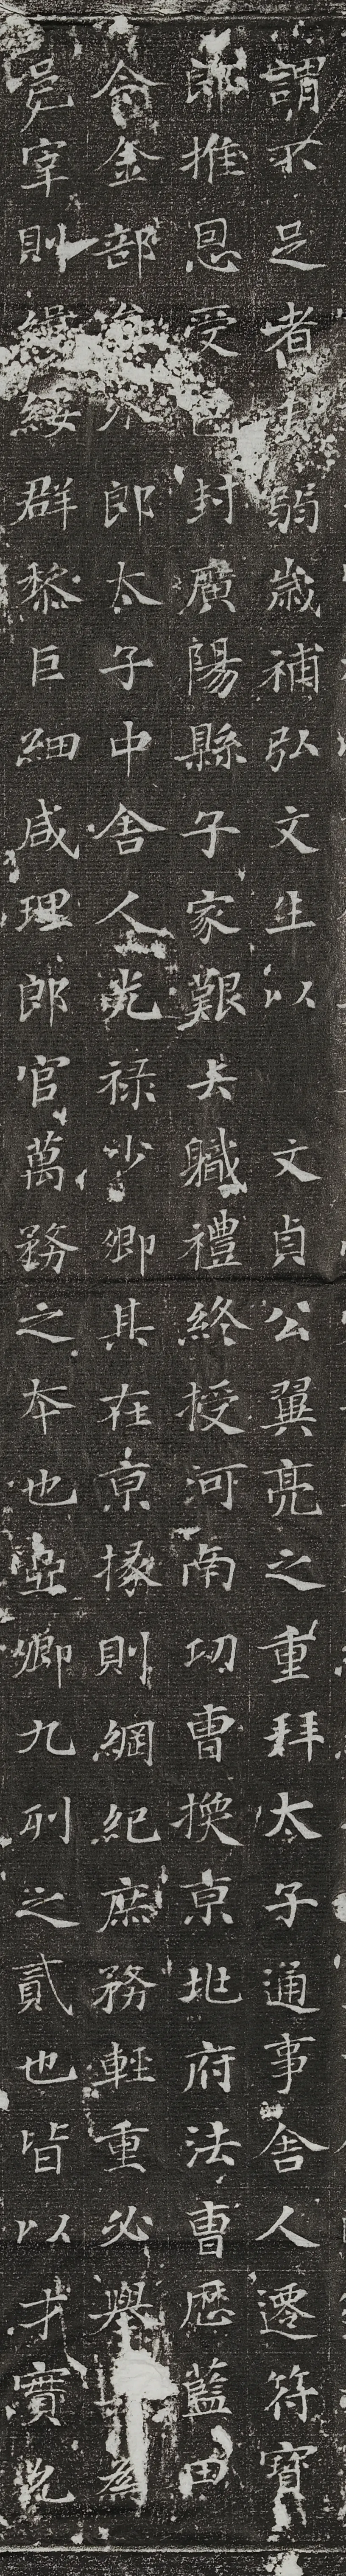 謂不足者弱歲補弘文生以文貞公翼亮之重拜太子通事舍人遷符寶
郎推恩受邑封廣陽縣子家艱去職禮終授河南功曹換京地府法曹歷藍田
令金部員外郎太子中舍人光祿少卿其在京掾則綱紀庶務輕重必舉
邑宰則緝綏群黎巨細咸理郎官萬務之本也亞卿九列之貳也皆以才實